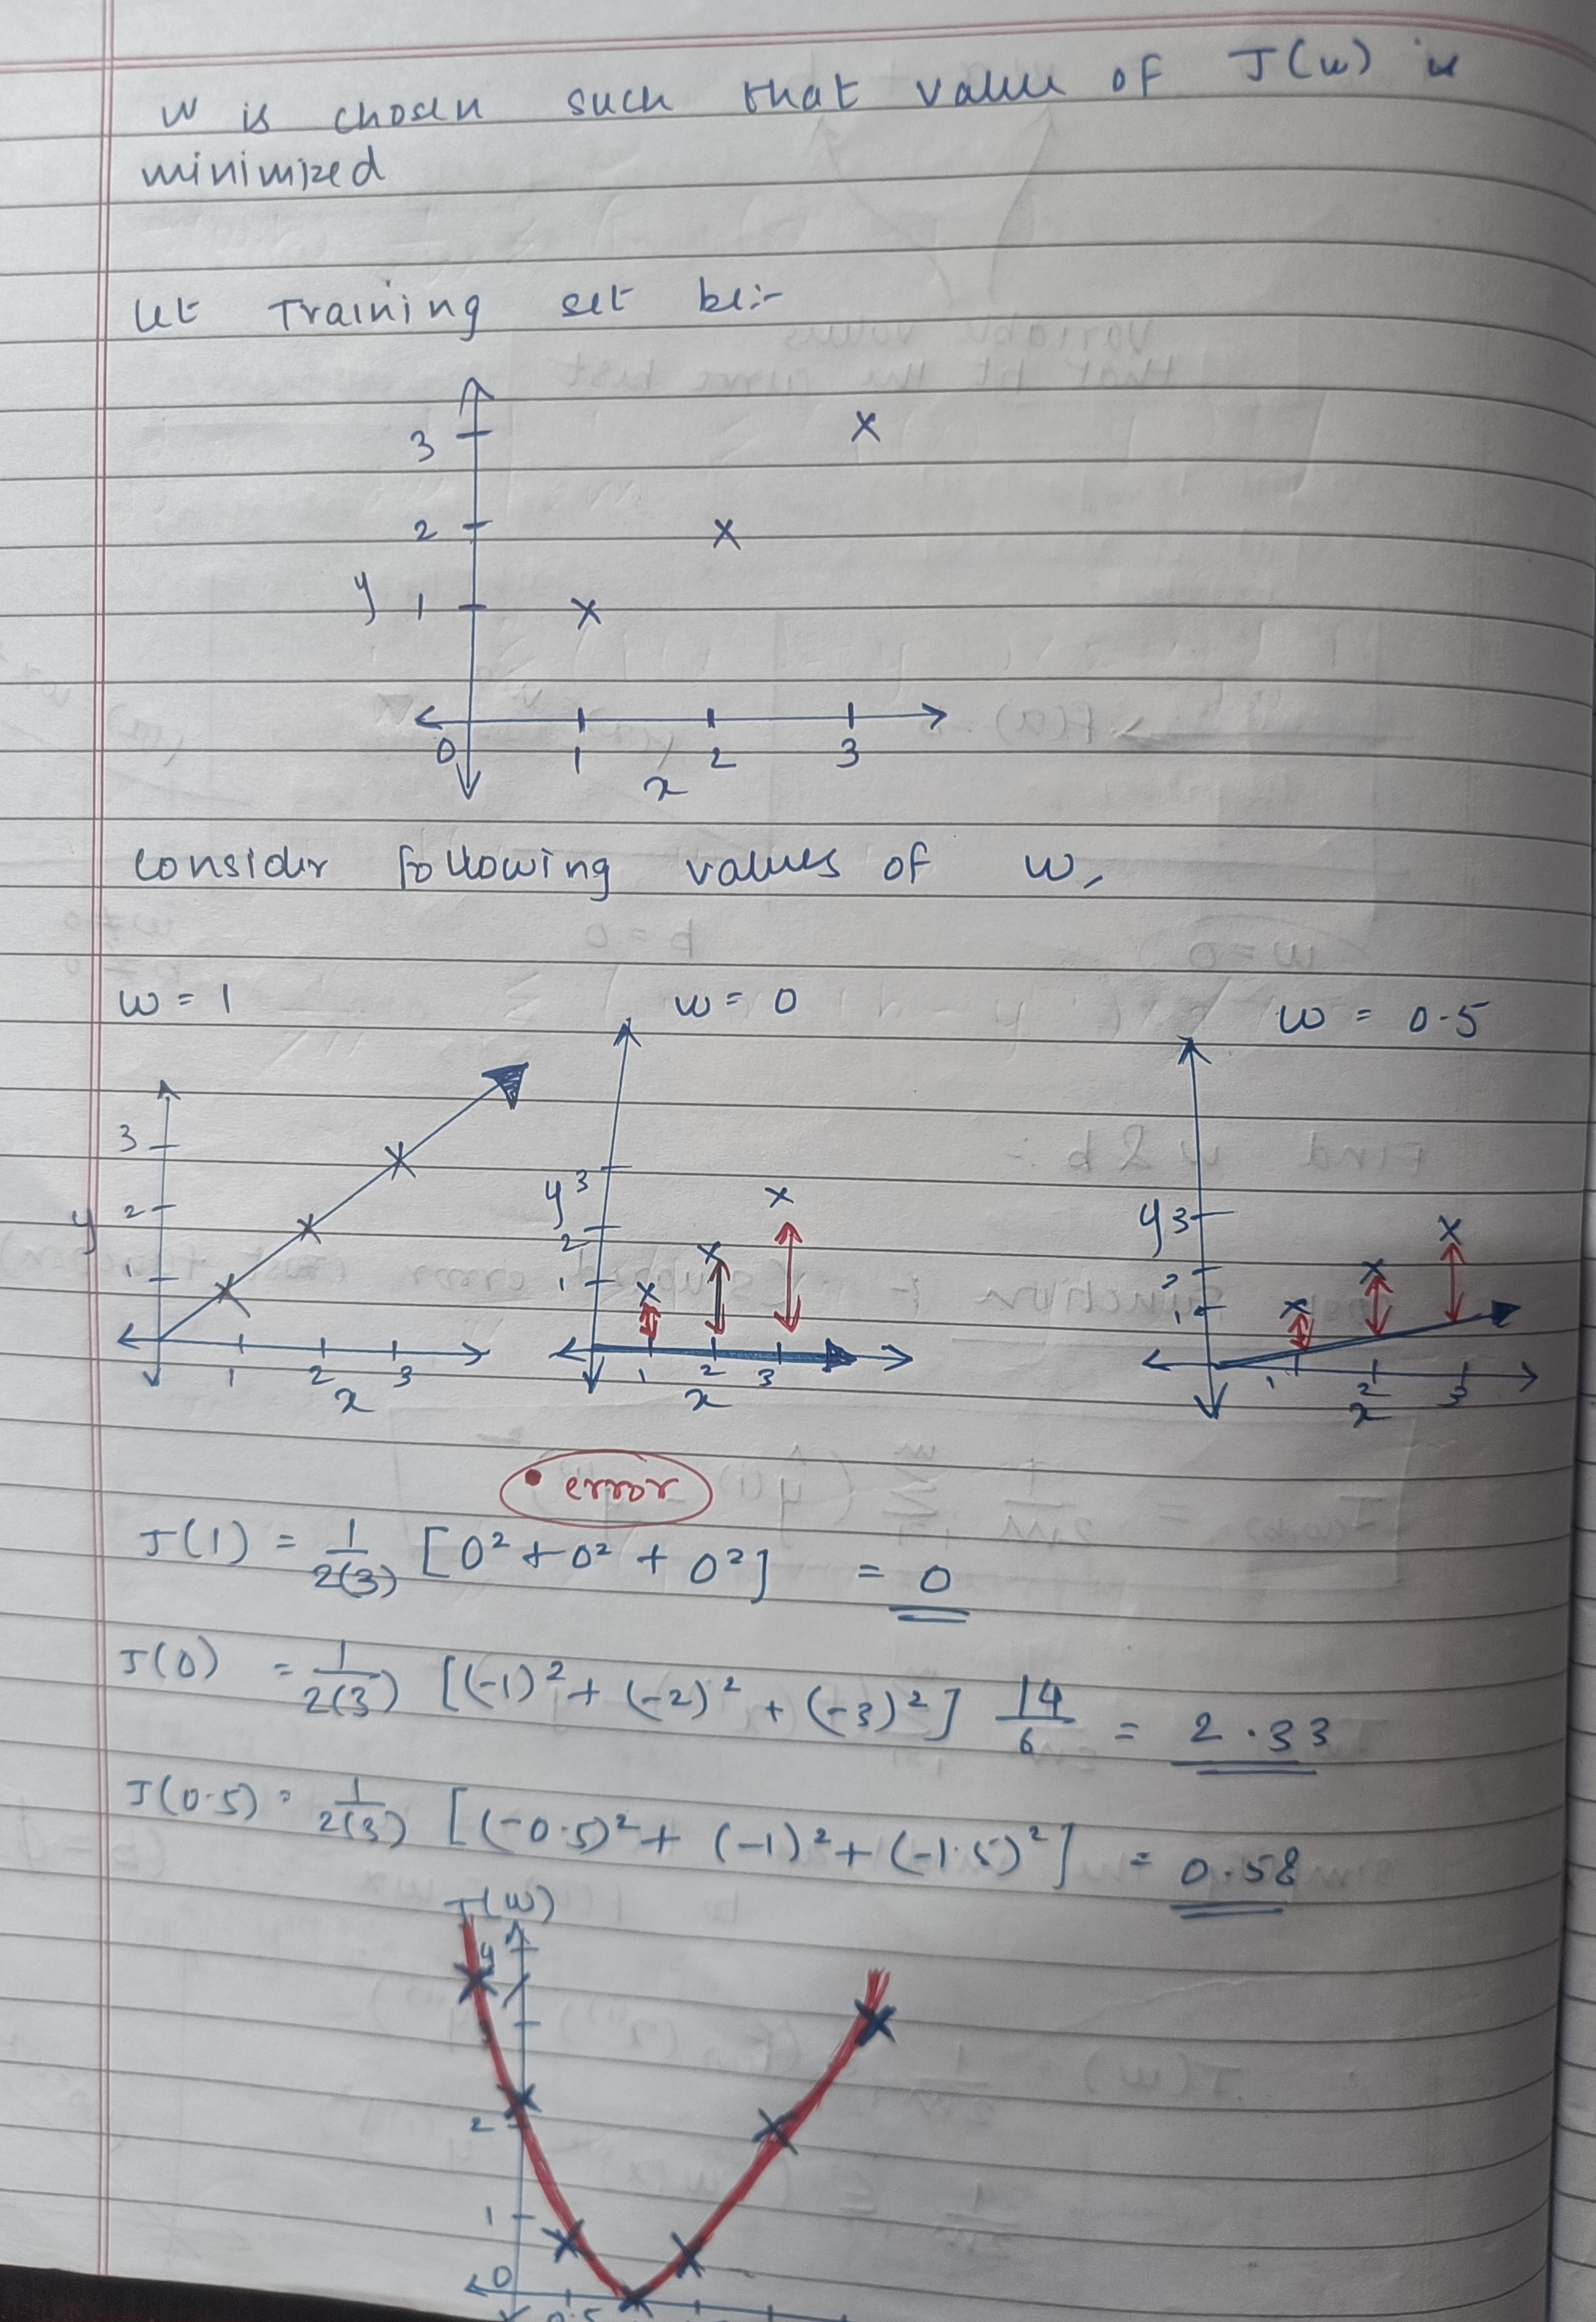 w is chosen such that value of J(w) is
minimized
let Training set be:-
3
2
y 1
0 1 2 3
x
Consider following values of w,
w = 1 w = 0 w = 0.5
3
2
y
1
1 2 3
x
y 3
2
1
1 2 3
x
y 3
2
1
1 2 3
x
• error
J(1) = 1/2(3) [0² + 0² + 0²] = 0
J(0) = 1/2(3) [(-1)² + (-2)² + (-3)²] 14/6 = 2.33
J(0.5) = 1/2(3) [(-0.5)² + (-1)² + (-1.5)²] = 0.58
J(w)
4
3
2
1
0
0.5